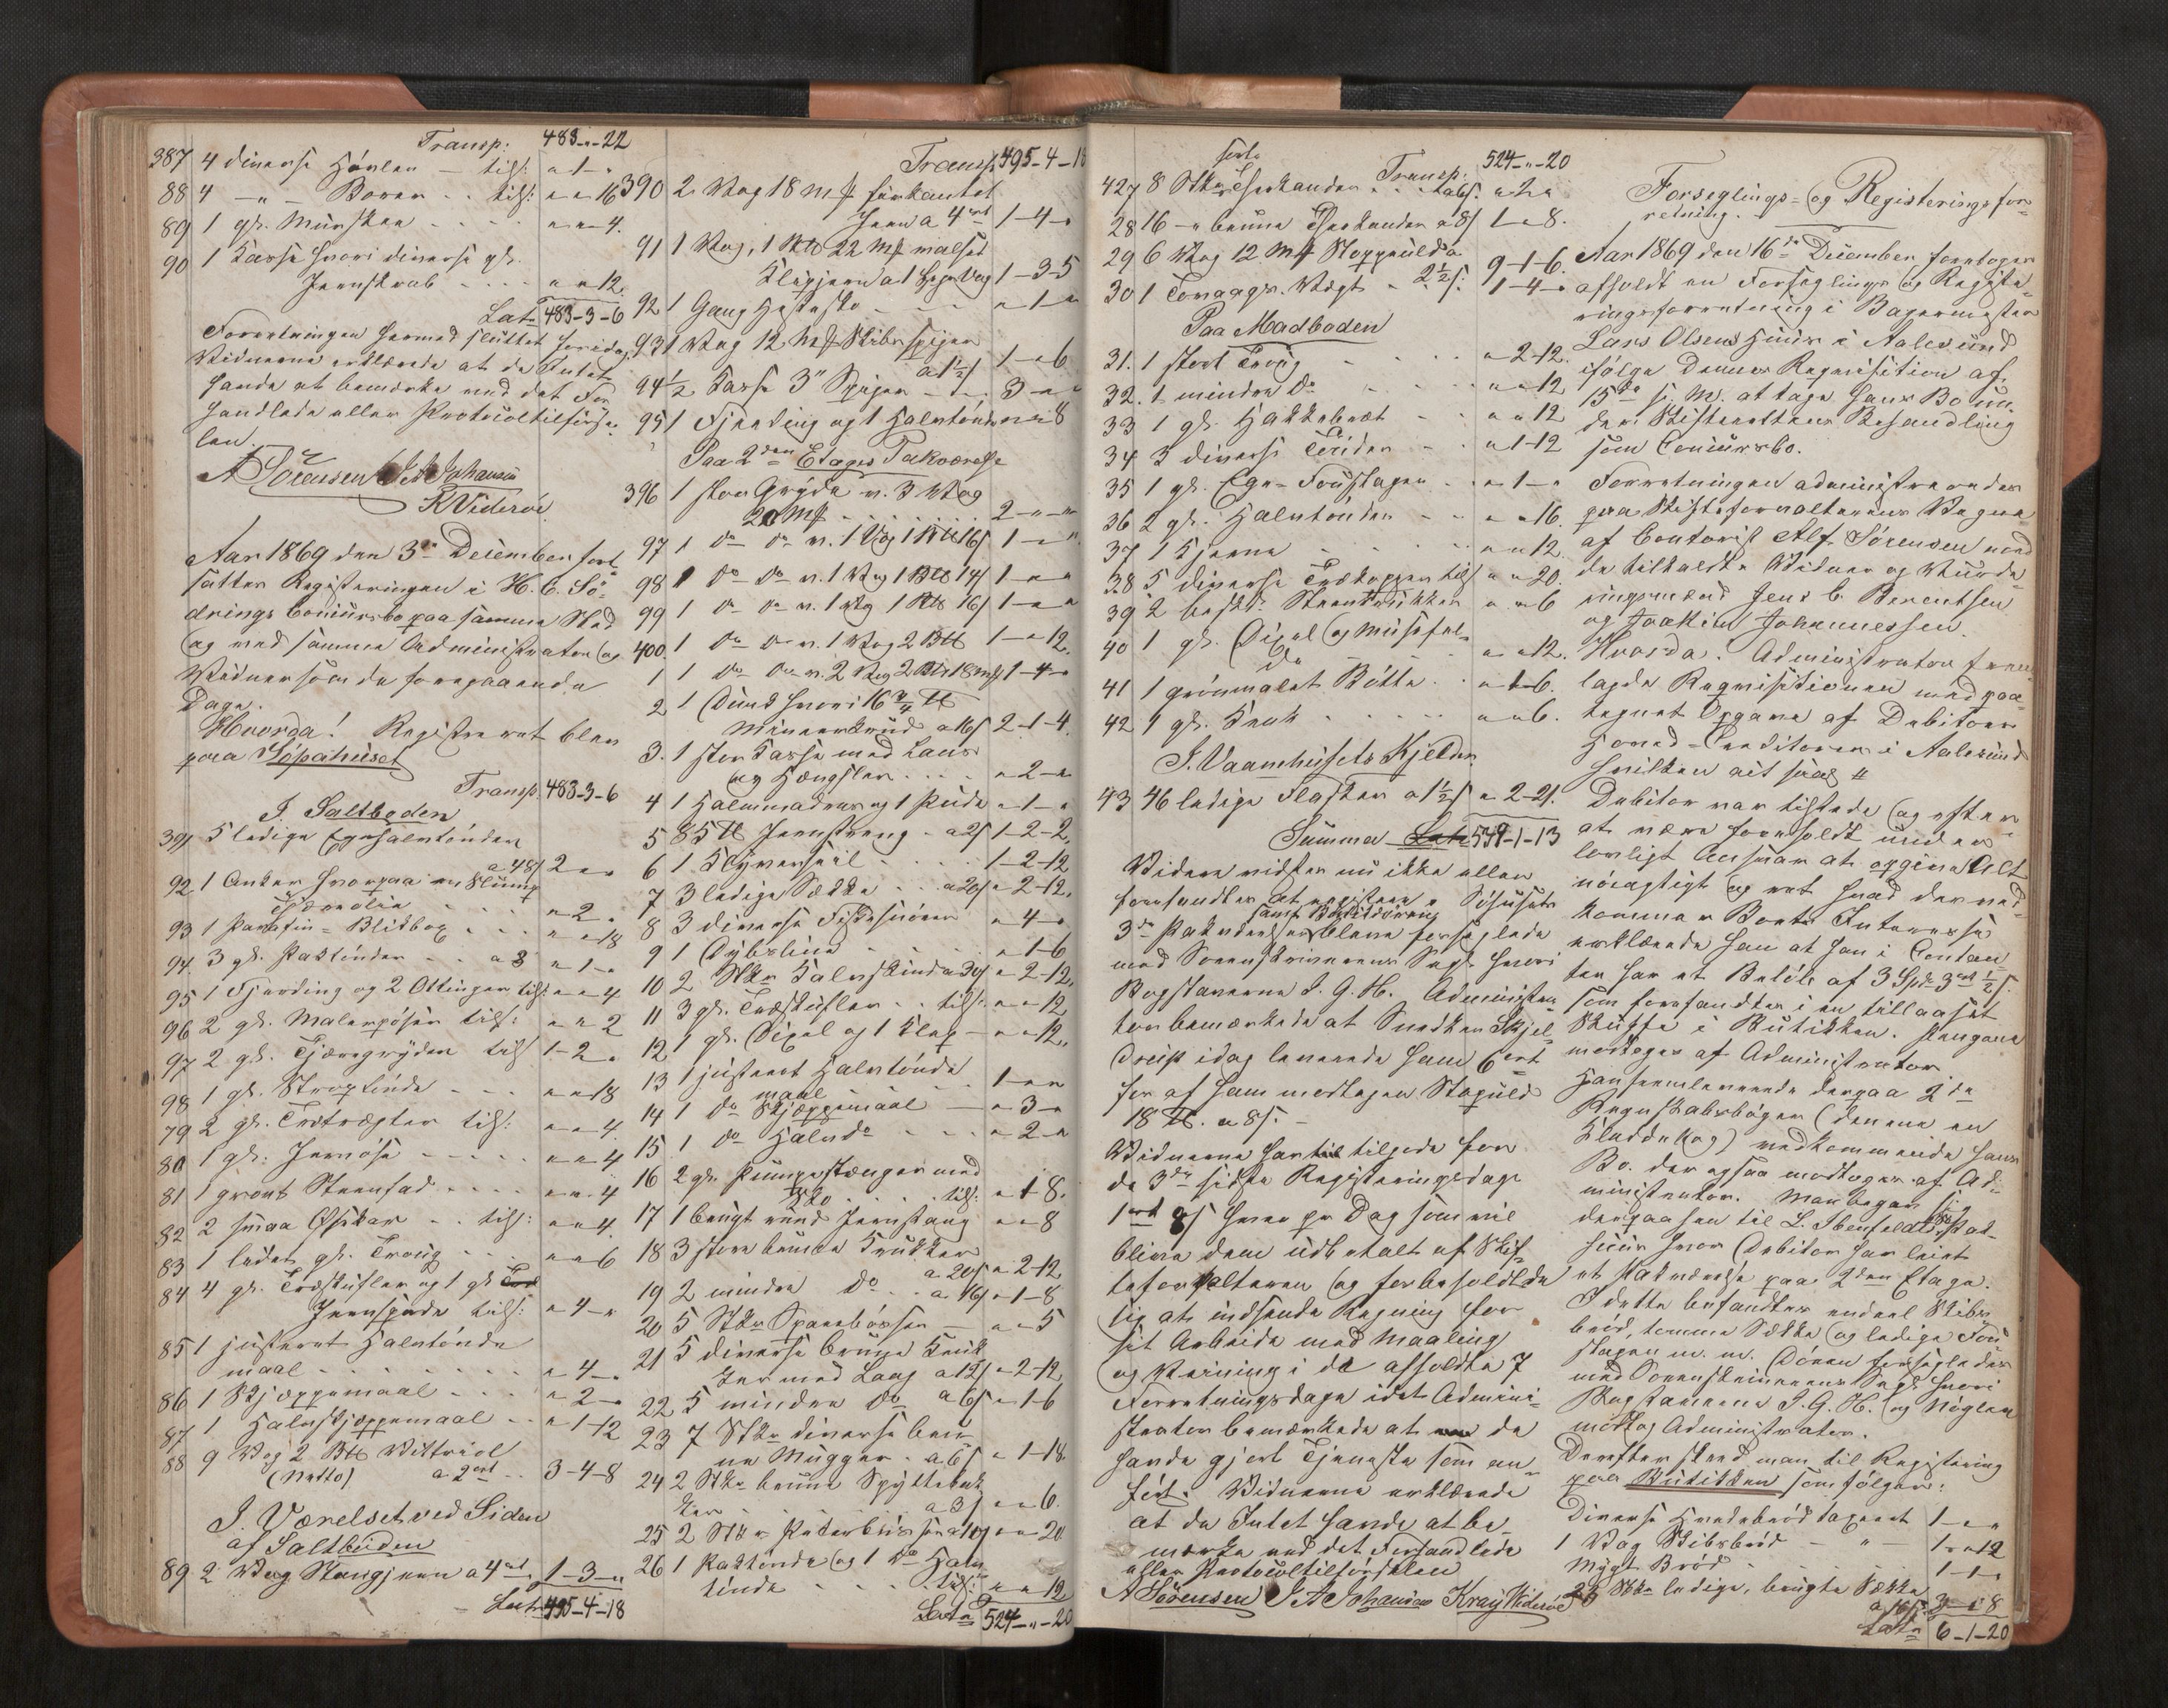 Transp: 483-"-22
387 4 diverse Hövler - tils: " 1 - "
88 4 -"- Borer . . tils: " " 16
89 1 gl. Murskee . . . " - " 4.
90 1 Kasse hvori diverse gl.
Jernskrab . . . . " " 12.
Lat. 483-3-6
Forretningen hermed sluttet foridag.
Vidnerne erklærede at de Intet
havde at bemærke ved det For
handlede eller Protocoltilförse
len.
A Sörensen J A Johansen
K Viderøe
Aar 1869 den 3die December fort
sattes Registeringen i H. C. Sö-
drings Concursbo paa samme Sted
og med samme Administrator og
Vidner som de foregaaende
Dage.
Hvorda! Registreret blev
paa Söpahuset
Transp. 483-3-6
I Saltboden
391 5 ledige Egesaltönder
a 48 s 2 - " "
92 1 Anker hvorpaa en Slump
" 2 "
93 1 Parafin-Blikbox . . . " " 18
94 3 gl. Saltönder . . a 8 " 1 - "
95 1 Fjerding og 2 Ottinger tils: " " 4
96 2 gl. Malerpöser tils: " " 2
97 2 gl. Tjæregryder tils 1-2 "
98 1 gl. - - - " " 18
79 2 gl. Trætragter tils: " " 4
80 1 gl: - - - " " 4
81 1 grønt Steenfad . . . . " " 4
82 2 smaa Öskar . . tils: " " 4
83 1 ledet gl. Troug . . . " " 6
84 4 gl. Træskufler og 1 gl
Jernspade tils: " 4 - "
85 1 justeret Halvtönde
maal . . . . . " 4 - "
86 1 Skjæppemaal . . . " 2 - "
87 1 Halvskjæppemaal . . " 1-12
88 9 Vog 2 B℔ Vittriol
(Netto) a 2 ort . . 3-4-8
I. Værelset ved Siden
af Saltboden
89 2 Vog Stangjern a 4 ort 1-3-"
Lat. 495-4-18
Transp. 495-4-18
390 2 Vog 18 m℔ firkantet
Jern a 4 ort 1-4-"
91 1 Vog, 1 B℔ 22 m℔ valset
Klipjern a 1 pr Vog 1-3-5
92 1 Gang Hestesko . . . " 1 - "
93 1 Vog 12 m℔ Skibsspiger
a 1½ s 1 - " 6
94 ½ Kasse 3" Spiger - . . 3 - " "
95 1 Fjerding og 1 Halvtönde " " 8
Paa 2den Etages Takværelse
396 1 stor Gryde v. 3 Vog
20 m℔ . . . . . 2 - " - "
97 1 do do v. 1 Vog 1 B℔ 16 s 1 - " "
98 1 do do v. 1 Vog 1 B℔ 14 s 1 - " "
99 1 do do v. 1 Vog 1 B℔ 16 s 1 - " "
400. 1 do do v. 1 Vog 2 B℔ 1 - " 12.
1 1 do do v. 2 Vog 2 B℔ 18 m℔ 1-4-"
2 1 Dunk hvori 16 ¾ ℔
Minerkrud a 16 s 2-1-4.
3. 1 stor Kasse med Laas
og Hængsler . . . . " 2 - "
4 1 Halmmadras og 1 Pude " 1 - "
5 85 ℔ Jernstreng - a 2 s 1-2-2
6 1 Klyversæil . . . . . 1-2-12
7 3 ledige Sække . . a 20 s " 2-12.
8 3 diverse Fiskesnörer " 4 - "
9 1 Dybsline . . . . . " 1-6
10 2 Stkr Kalveskind a 30 s " 2-12.
11 3 gl. Træskufler . . tils. " " 12
12 1 gl. Dixel og 1 Klap - " " 12.
13 1 justeret Halvtönde
maal . . . . . 1 - " "
14 1 do Skjæppemaal - " 3 - "
15 1 do Halvdo . . . " 2 - "
16 2 gl. Pumpestænger med
Sko . . . . . tils: " 1-8.
17 1 brugt rund Jernstang " " 8
18 3 store brune Krukker
a 20 s " 2-12
19 2 mindre Do . . a 16 s " 1-8
20 5 Stkr Sparebösser - " " 5
21 5 diverse brune Kruk
ker med Laag a 12 s " 2-12
22 5 mindre Do a 6 s " 1-6
23 7 Stkr diverse bru
ne Mugger . a 6 s " 1-18
24 2 Stkr brune Spyttebak
ker a 3 s " " 6
25 2 Stkr a 10 s " " 20
26 1 Saltönde og 1 do Halv
tönde . . . . tils: " " 12
Lat. 524-"-20
Transp: 524-"-20
sorte
427 8 Stkr Thekander . . a 6 s. " 2 "
28 16 -" brune Thekander a 8 s 1 - " 8.
29 6 Vog 12 m℔ Stoppeuld a
2½ s. 9-1-6.
30 1 Tovægs. Vægt - 1-4-"
Paa Madboden
31. 1 stort Troug . . . . " 2-12.
32. 1 mindre Do . . . . " " 12
33 1 gl. Hakkebræt - - " " 12
34 3 diverse Tönder - - " 1-12
35 1 gl. Ege-Foustagen . " 1 - "
36 2 gl. Halvtönder - - " " 16.
37 1 Kjærne . . . . " " 12.
38 5 diverse Trækopper tils " " 20.
39 2 beskd. Steenkrukker " " 6
40 1 gl. Dixel og Musefel-
de . . . . " " 12.
41 1 grönmalet Bötte . . " 1-6.
42 1 gl. Krak . . . . . " " 6.
I. Vaanhusets Kjelder
43 46 ledige Flasker a 1½ s " 2-21.
Summa 539-1-13
Videre vidstes nu ikke eller
forefandtes at registere. Söhusets
samt Boutikdören
3de Pakboder bleve forseglede
med Sorenskriverens Segl hvori
Bogstaverne J. G. H. Administra
tor bemærkede at Snedker Skjel-
drup idag leverede ham 6 ort
for af ham modtagen Stopuld
18 ℔. a 8 s. -
Vidnerne har tilgode for
de 3de sidste Registeringsdage
1 ort 8 s hver pr Dag som vil
blive dem udbetalt af Skif-
teforvalteren og forbeholdt de
sig at indsende Regning for
sit Arbeide med Maaling
og Veining i de afholdte 7
Forretningsdage idet Admini-
strator bemærkede at de
havde gjort Tjeneste som an-
fört. Vidnerne erklærede
at de Intet havde at be-
mærke ved det Forhandlede
eller Protocoltilförselen
A Sörensen J A Johansen Kray Viderøe
Forseglings- og Registeringsfor-
retning.
Aar 1869 den 16de December foretoges
afholdt en Forseglings og Registe-
ringsforretning i Bagermester
Lars Olsens Huus i Aalesund
ifölge dennes Requisition af
15de s. M. at tage hans Bo un-
der Skifterettens Behandling
som Concursbo.
Forretningen administreredes
paa Skifteforvalterens Vegne
af Contorist Alf. Sörensen med
de tilkaldte Vidner og Vurde-
ringsmænd Jens C. Berentsen
og Joakim Johannessen.
Hvorda. Administrator frem
lagde Requisitionen med paa-
tegnet Opgave af Debitors
Hoved-Creditorer i Aalesund
hvilken ait saal.
Debitor var tilstede og efter
at være foreholdt under
lovligt Ansvar at opgive Alt
nöiagtigt og ret hvad der ved-
kommer Boets Interesse
erklærede han at han i Contan-
ter har et Belöb af 3 Spd 3 ort ½ s.
som forefandtes i en tillaaset
Skuffe i Butikken. Pengene
modtoges af Administrator
Han fremleverede derpaa 2de
Regnskabsböger (denne en
Kladdebog) vedkommende hans
Bo. der ogsaa modtoges af Ad-
ministrator. Man begav sig
derpaa hen til L. Ibenfeldts Pak-
huus hvor Debitor har leiet
et Pakværelse paa 2den Etage.
I dette befandtes endeel Skibs
bröd, tomme Sække og ledige Fou
stagen m. m. Dören forsegledes
med Sorenskriverens Segl hvori
Bogstaverne J. G. H. og Nöglen
modtog Administrator.
Derefter skred man til Registering
paa Butikken som fölger:
Diverse Hvedebröd taxeret 1 - " "
1 Vog Skibsbröd - " - 1 - " 12
Mygt Bröd . . . . 1-1-"
26 Stkr ledige, brugte Sække
a 16 s. 3-"-8
Lat. 6-1-20